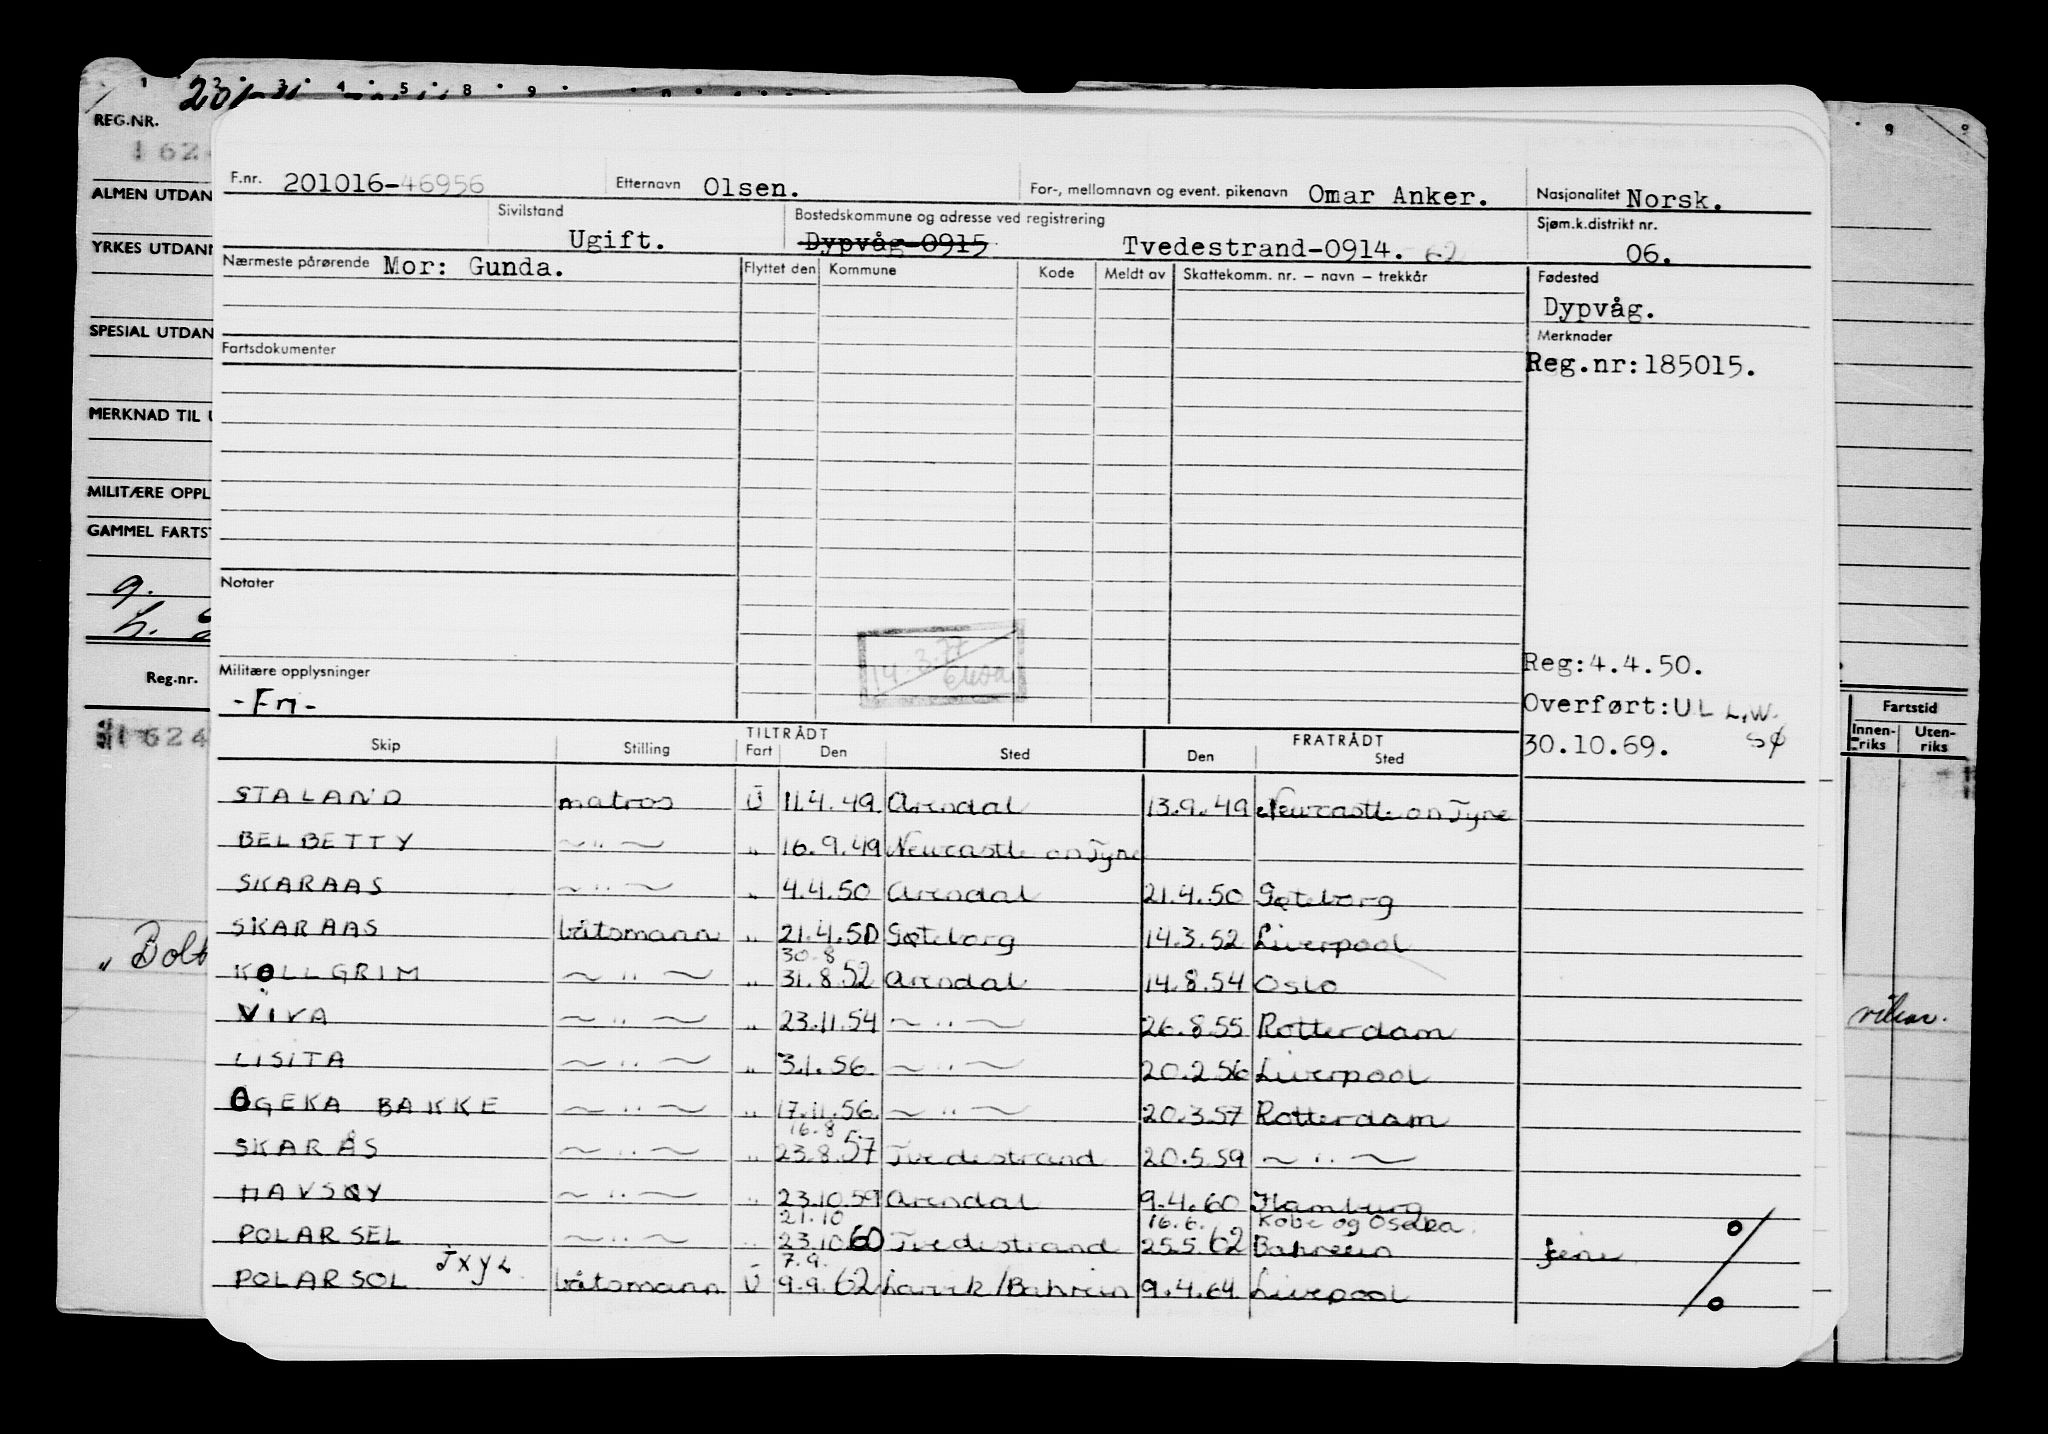 REG.NR.
ALMEN UTDAN
YRKES UTDAN
SPESIAL UTDAN
MERKNAD TIL U
MILITÆRE OPPL
GAMMEL FARTST
Reg.nr.
1624
„ Bolt
F.nr. 201016-46956 Etternavn Olsen. For-, mellomnavn og event. pikenavn Omar Anker. Nasjonalitet Norsk.
Sivilstand Ugift. Bostedskommune og adresse ved registrering Dypvåg-0915 Tvedestrand-0914. 62 Sjøm.k.distrikt nr. 06.
Nærmeste pårørende Mor: Gunda. Flyttet den Kommune Kode Meldt av Skattekomm. nr. – navn – trekkår Fødested
Dypvåg.
Fartsdokumenter Merknader
Reg.nr:185015.
Notater
14.3.77
Militære opplysninger Reg:4.4.50.
- Fri - Overført: UL L.W.
30.10.69. SØ
TILTRÅDT FRATRÅDT
Skip Stilling Fart Den Sted Den Sted
STALAND matros U 11.4.49. Arendal 13.9.49 Newcastle on Tyne
BELBETTY ~ „ ~ „ 16.9.49 Newcastle on Tyne
SKARAAS ~ „ ~ „ 4.4.50 Arendal 21.4.50 Gøteborg
SKARAAS båtsmann „ 21.4.50 Gøteborg 14.3.52 Liverpool
30.8
KOLLGRIM ~ „ ~ „ 31.8.52 Arendal 14.8.54 Oslo
VIVA ~ „ ~ „ 23.11.54 ~ „ ~ 26.8.55 Rotterdam
LISITA ~ „ ~ „ 3.1.56. ~ „ ~ 20.2.56 Liverpool
OGEKA BAKKE ~ „ ~ „ 17.11.56. ~ „ ~ 20.3.57 Rotterdam
16.8
SKARÅS ~ „ ~ „ 23.8.57 Tvedestrand 20.5.59 ~ „ ~
HAVSKY ~ „ ~ „ 23.10.59 Arendal 9.4.60 Hamburg
21.10 16.6. Kobe og Osaka
POLARSEL ~ „ ~ „ 23.10.60 Tvedestrand 25.5.62 Bahrein ferie
7.9.
POLARSOL JXYL båtsmann U 9.9.62 Larvik/Bahrein 9.4.64 Liverpool
Fartstid
Innen-riks Uten-riks